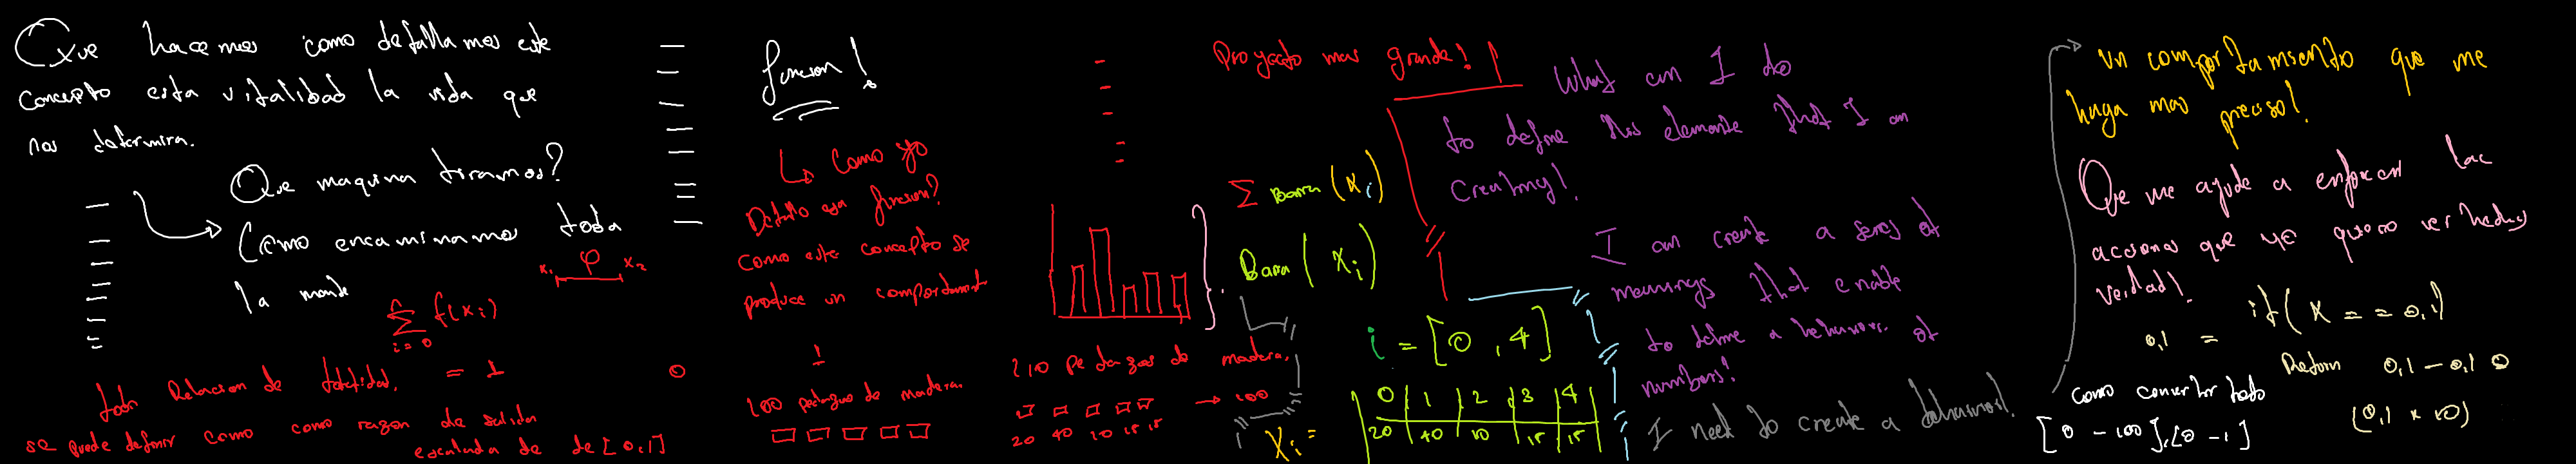 Que hacemos como detallamos este
concepto esta vitalidad la vida que
nos determina.
Que maquina tiramos?
Como encaminamos toda
la mente
x₁ φ x₂
n
∑ f(xi)
i = 0
toda Relacion de totalidad. = 1
se puede definir como como razon de salida
escalada de de [0,1]
0
funcion!
Como yo
Detallo esa funcion?
como este concepto se
produce un comportamient
1
100 pedazos de madera.
210 pedazos de madera.
→ 100
20 40 10 15 15
Proyecto mas grande!
∑ Barra (xi)
Barra (xi)
i = [0, 4]
0 | 1 | 2 | 3 | 4
Xi = 20 | 40 | 10 | 15 | 15
What can I do
to define this elements that I am
Creating!
I can create a series of
meanings that enable
to define a behavior of
numbers!
I need to create a behavior!
un comportamiento que me
haga mas preciso!
Que me ayude a enfocar las
acciones que yo quiero ver hechas
verdad!
if(X == 0,1)
0,1 =
Return 0,1 - 0,1 0
(0,1 × 10)
como convertir todo
[0 - 100],[0 - 1]